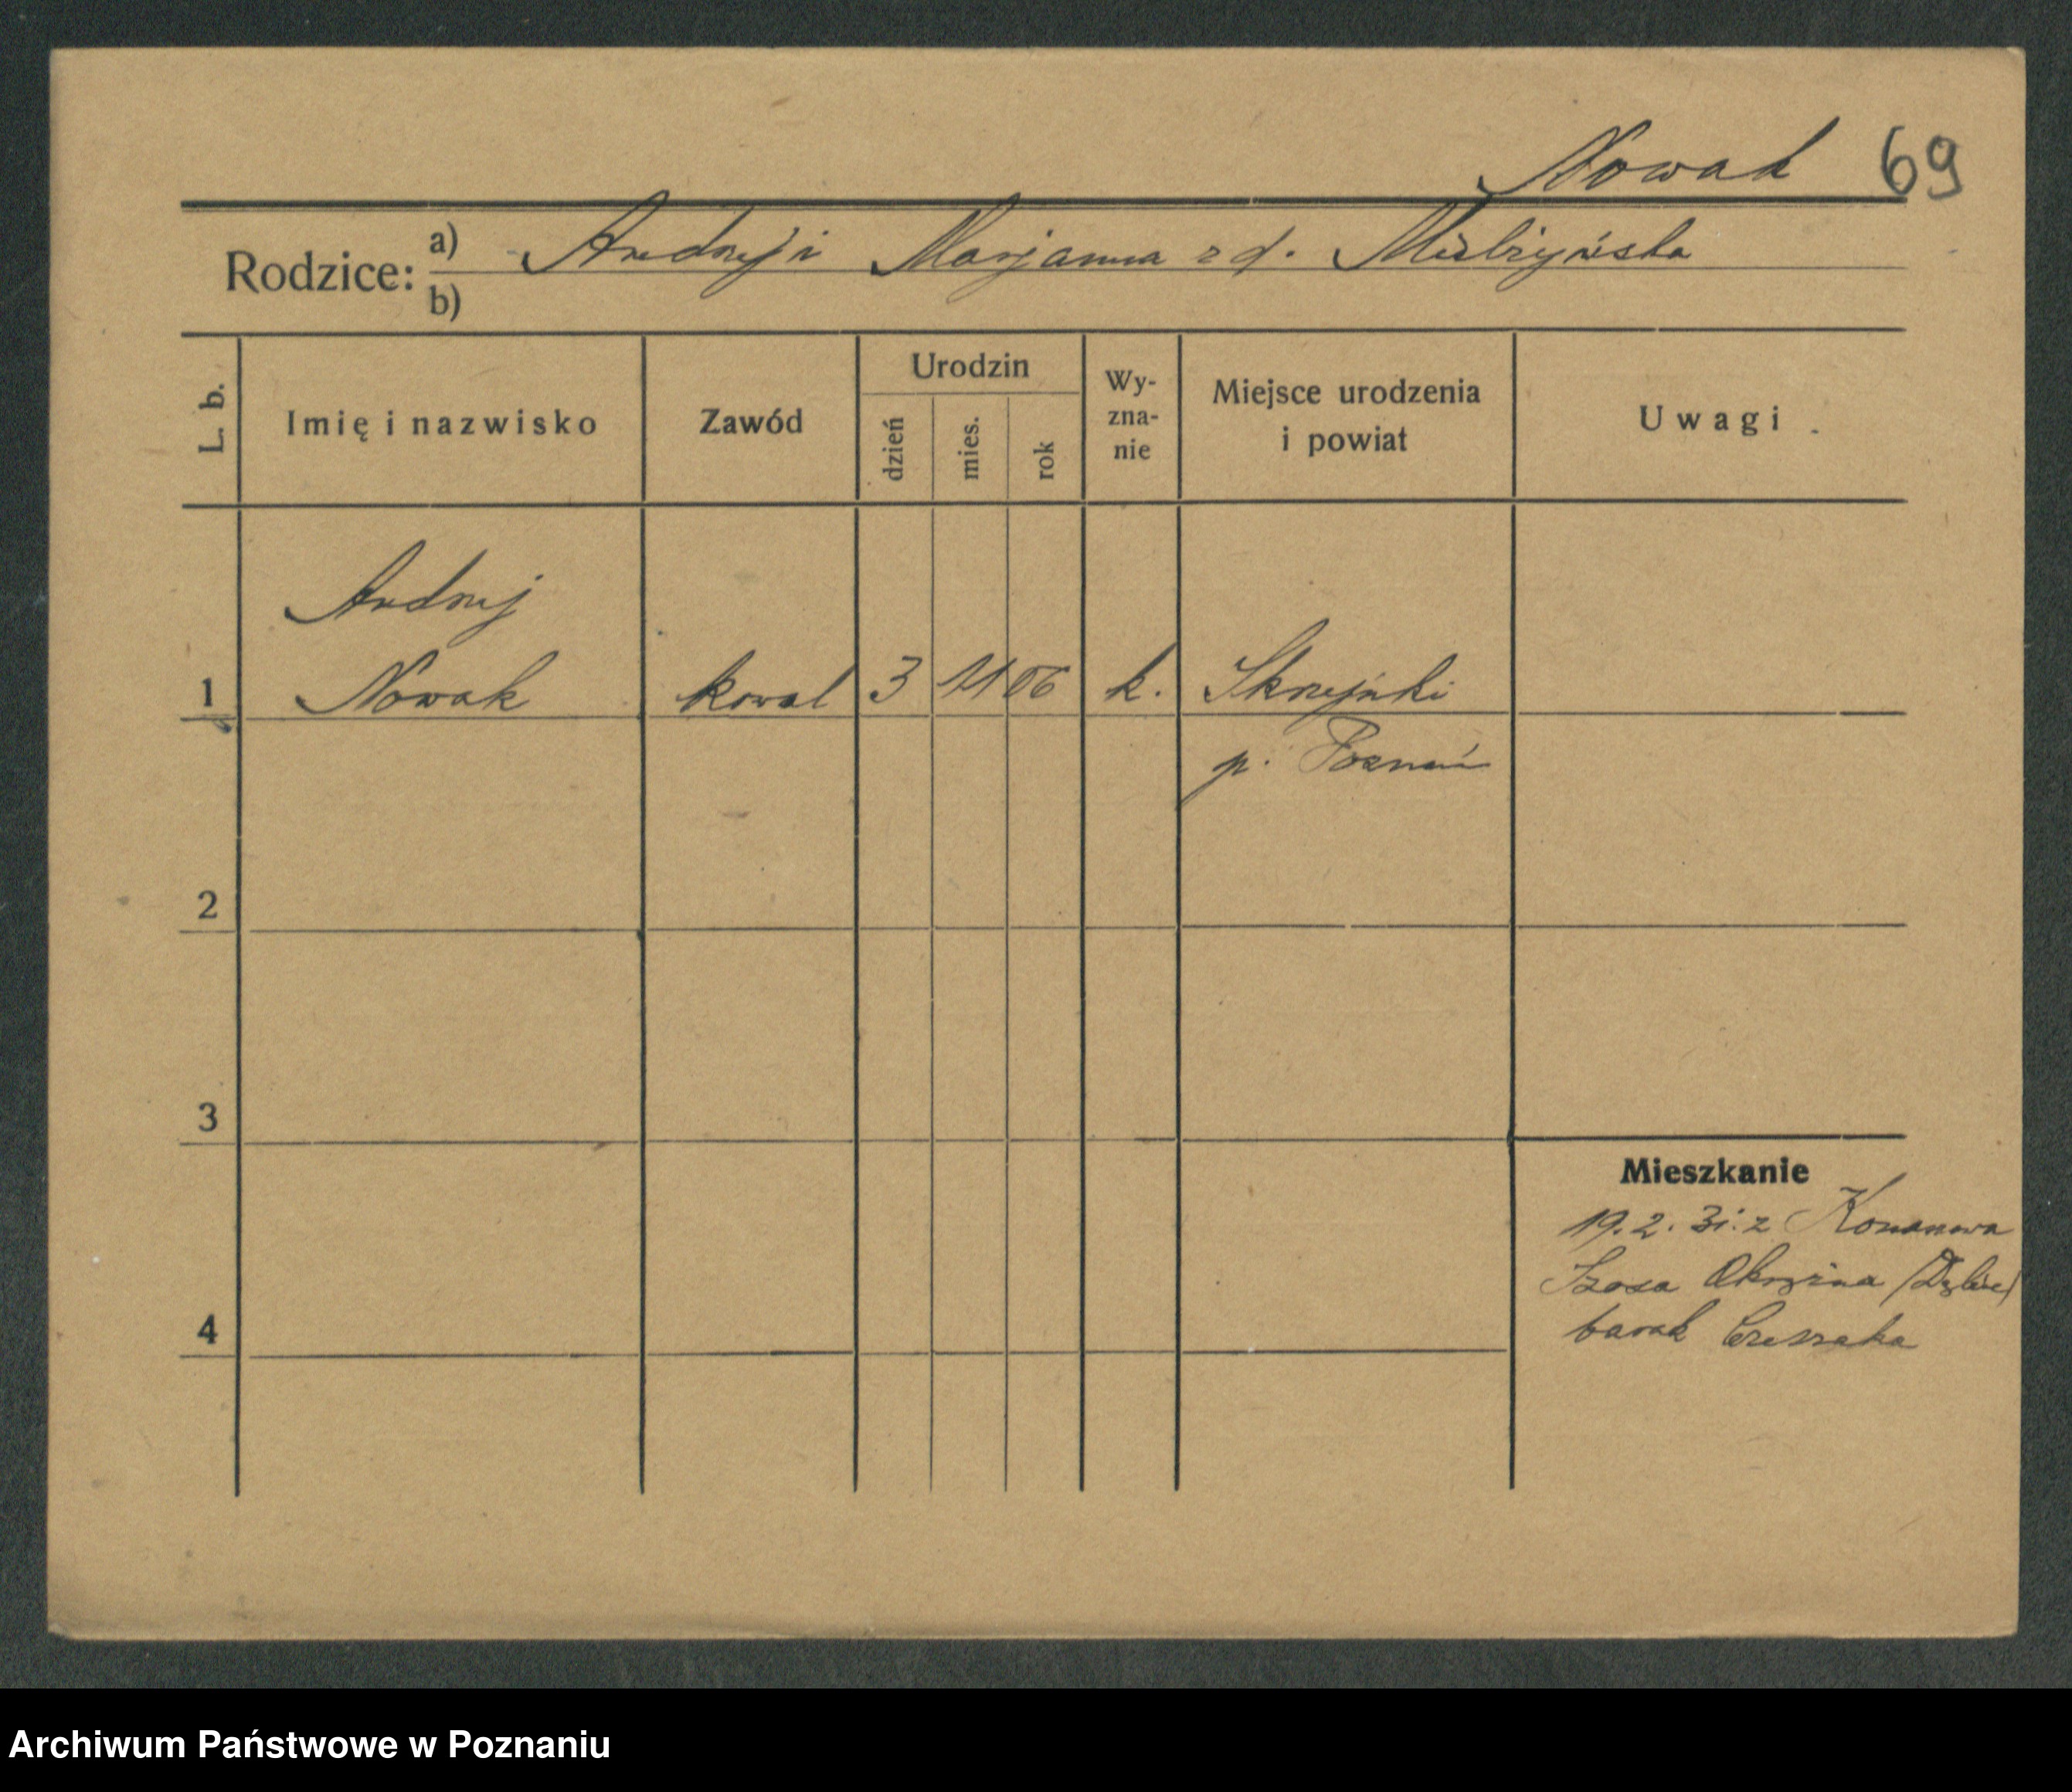 Nowak 69
Rodzice: a) Andrzej i Marjanna z d.
b)
L. b. Imię i nazwisko Zawód Urodzin dzień mies. rok Wy-zna-nie Miejsce urodzenia i powiat Uwagi
Andrzej
1 Nowak kowal 3 11 06 k. Skrzynki
p. Poznań
2
3
Mieszkanie
19.2.31. z
Szosa Okrężna
4 barak
Archiwum Państwowe w Poznaniu